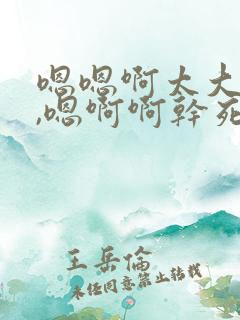 嗯嗯啊太大
,嗯啊啊幹死
王岳倫
未经同意禁止转载